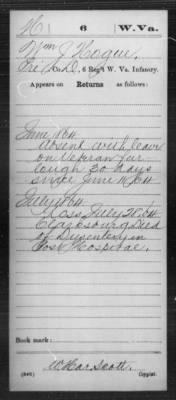 H | 6 | W.Va.
Wm J Hogue
Pvt, Co. D, 6 Reg't W. Va. Infantry.
Appears on Returns as follows:
June 1864
Absent with leave
on Veteran fur-
lough 30 days
since June 14, 64
July 1864
Loss July 28, 64
Clarksburg Died
of Dysentery in
Post Hospital.
Book mark:
(546)
Copyist.